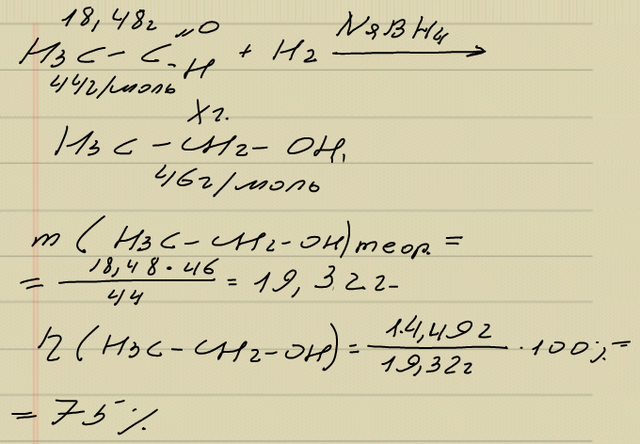 18,48г
H3C-C=O-H + H2 NaBH4 →
44г/моль
Xг.
H3C-CH2-OH,
46г/моль
m(H3C-CH2-OH)теор. =
= 18,48·46/44 = 19,32г
η(H3C-CH2-OH) = 14,49г/19,32г ·100% =
= 75%